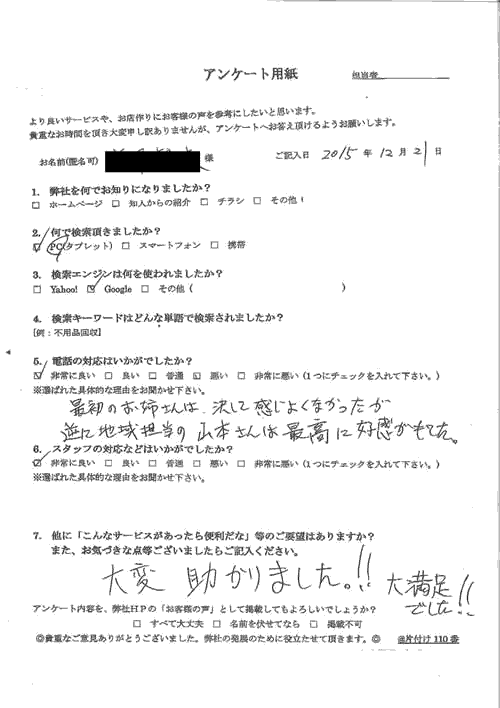 アンケート用紙
担当者
より良いサービスや、お店作りにお客様の声を参考にしたいと思います。
貴重なお時間を頂き大変申し訳ありませんが、アンケートへお答え頂けるようお願いします。
お名前(匿名可) 様 ご記入日 2015 年 12 月 21 日
1. 弊社を何でお知りになりましたか?
□ ホームページ □ 知人からの紹介 □ チラシ □ その他(
2. 何で検索頂きましたか?
☑ PC(タブレット) □ スマートフォン □ 携帯
3. 検索エンジンは何を使われましたか?
□ Yahoo! ☑ Google □ その他( )
4. 検索キーワードはどんな単語で検索されましたか?
[例：不用品回収]
5. 電話の対応はいかがでしたか?
☑ 非常に良い □ 良い □ 普通 ☑ 悪い □ 非常に悪い (1つにチェックを入れて下さい。)
※選ばれた具体的な理由をお聞かせ下さい。
最初のお姉さんは、決して感じよくなかったが
逆に地域担当の山本さんは最高に好感がもてた。
6. スタッフの対応などはいかがでしたか?
☑ 非常に良い □ 良い □ 普通 □ 悪い □ 非常に悪い (1つにチェックを入れて下さい。)
※選ばれた具体的な理由をお聞かせ下さい。
7. 他に「こんなサービスがあったら便利だな」等のご要望はありますか?
また、お気づきな点等ございましたらご記入ください。
大変 助かりました。!! 大満足
でした!!
アンケート内容を、弊社HPの「お客様の声」として掲載してもよろしいでしょうか?
□ すべて大丈夫 □ 名前を伏せてなら □ 掲載不可
◎貴重なご意見ありがとうございました。弊社の発展のために役立たせて頂きます。◎ @片付け110番